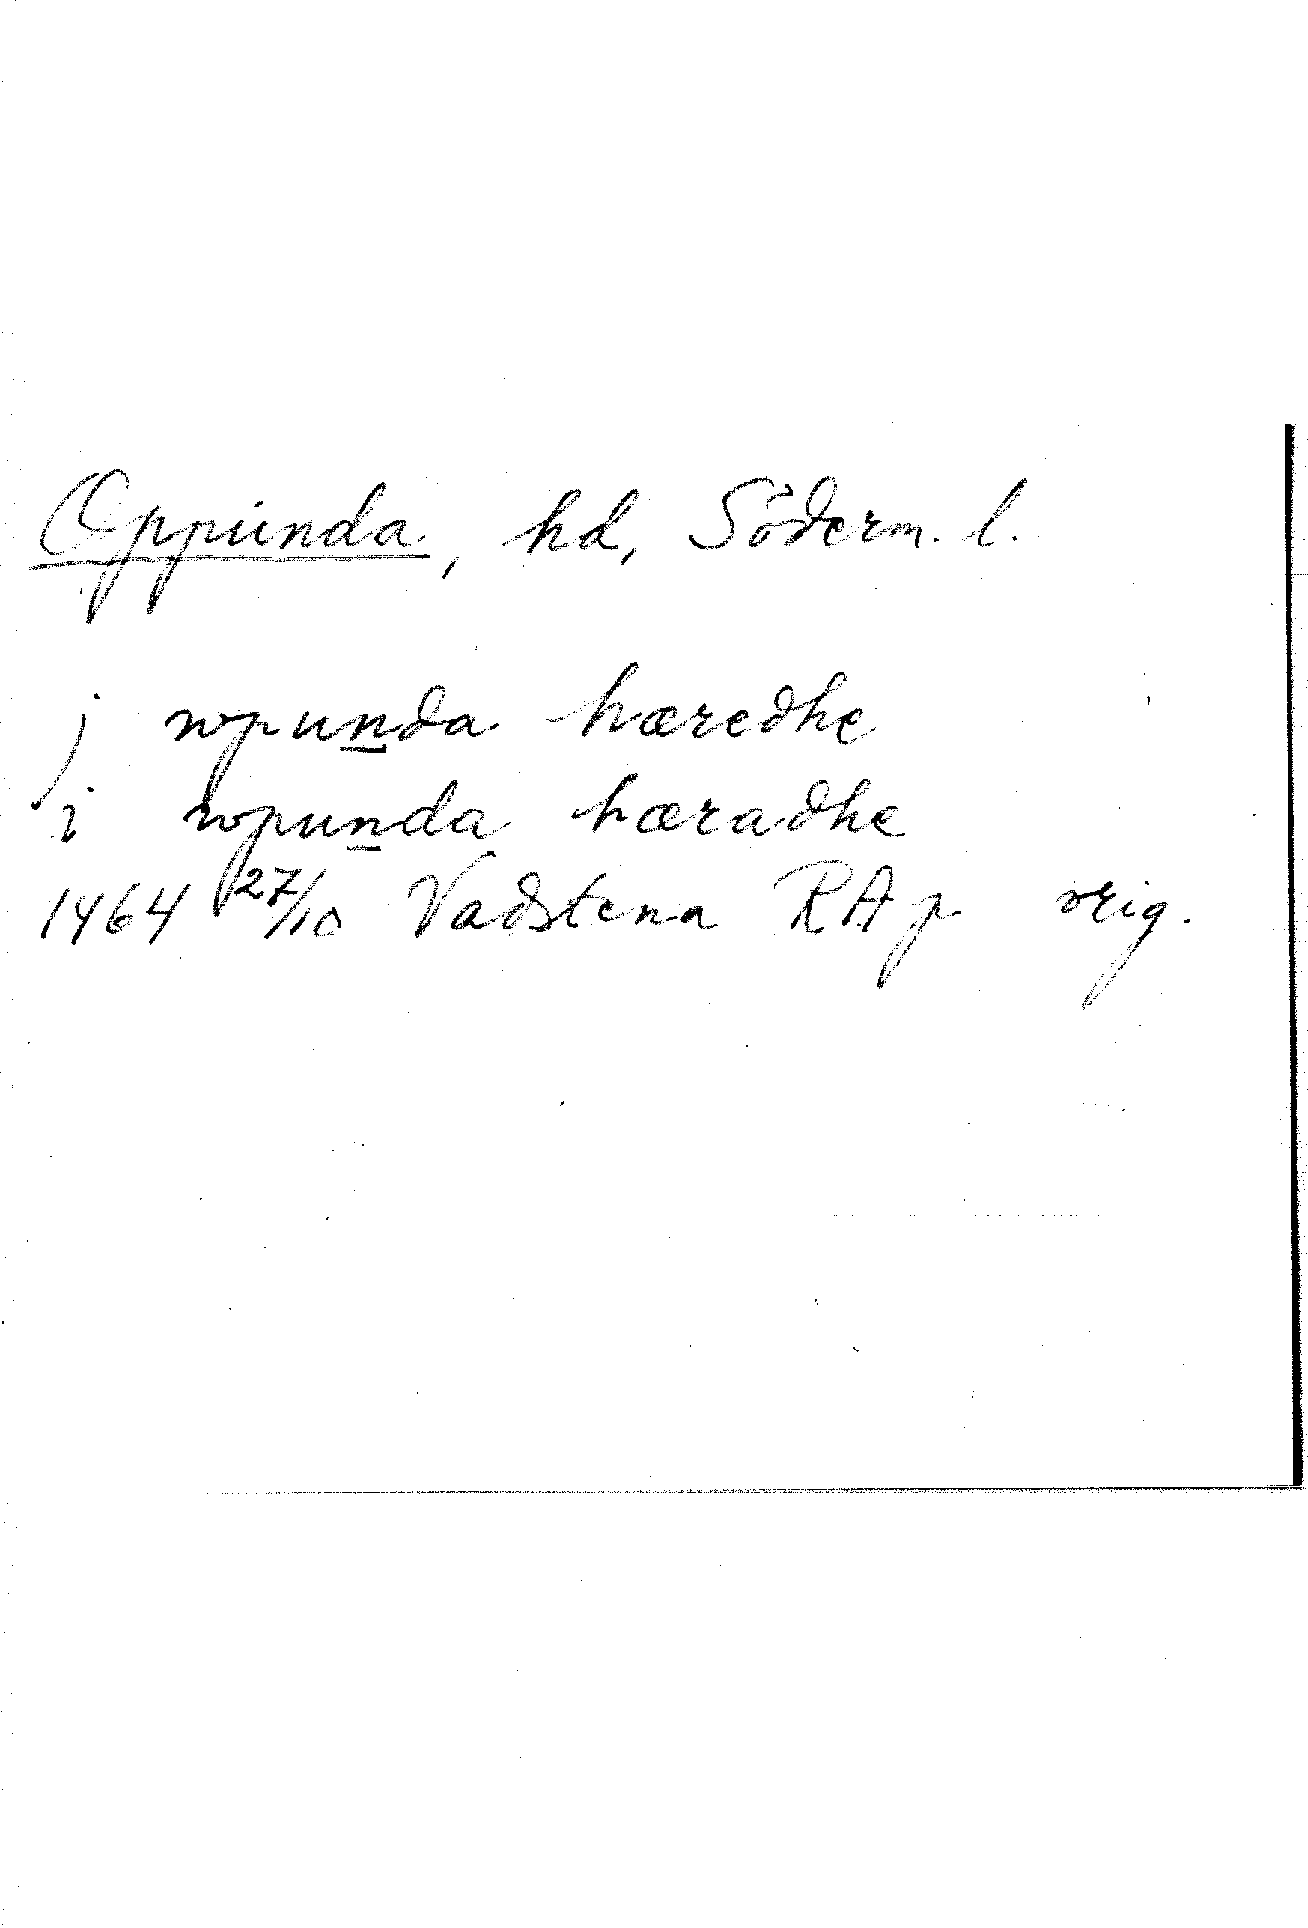 Oppunda, hd, Söderm. l.
j wpunda hæredhe
i wpunda hæradhe
1464 27/10 Vadstena RAp orig.